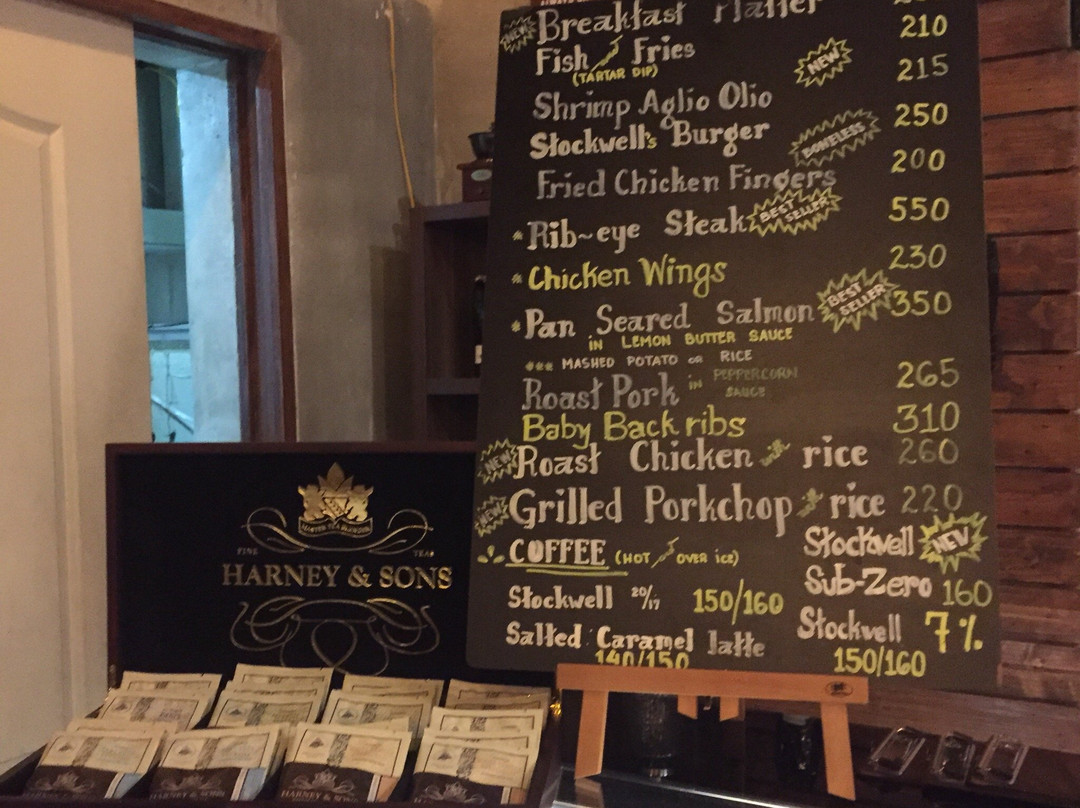 NEW Breakfast Platter
Fish & Fries 210
(TARTAR DIP) NEW
Shrimp Aglio Olio 215
Stockwell's Burger 250
BONELESS
Fried Chicken Fingers 200
* Rib~eye Steak BEST SELLER 550
* Chicken Wings 230
* Pan Seared Salmon BEST SELLER 350
IN LEMON BUTTER SAUCE
*** MASHED POTATO or RICE
Roast Pork in PEPPERCORN SAUCE 265
Baby Back ribs 310
NEW Roast Chicken with rice 260
NEW Grilled Porkchop & rice 220
COFFEE (HOT & OVER ICE)
Stockwell 20/17 150/160
Salted Caramel latte
140/150
Stockwell NEW
Sub-Zero 160
Stockwell 7%
150/160
FINE TEAS
HARNEY & SONS
HARNEY & SONS
HARNEY & SONS
HARNEY & SONS
HARNEY & SONS